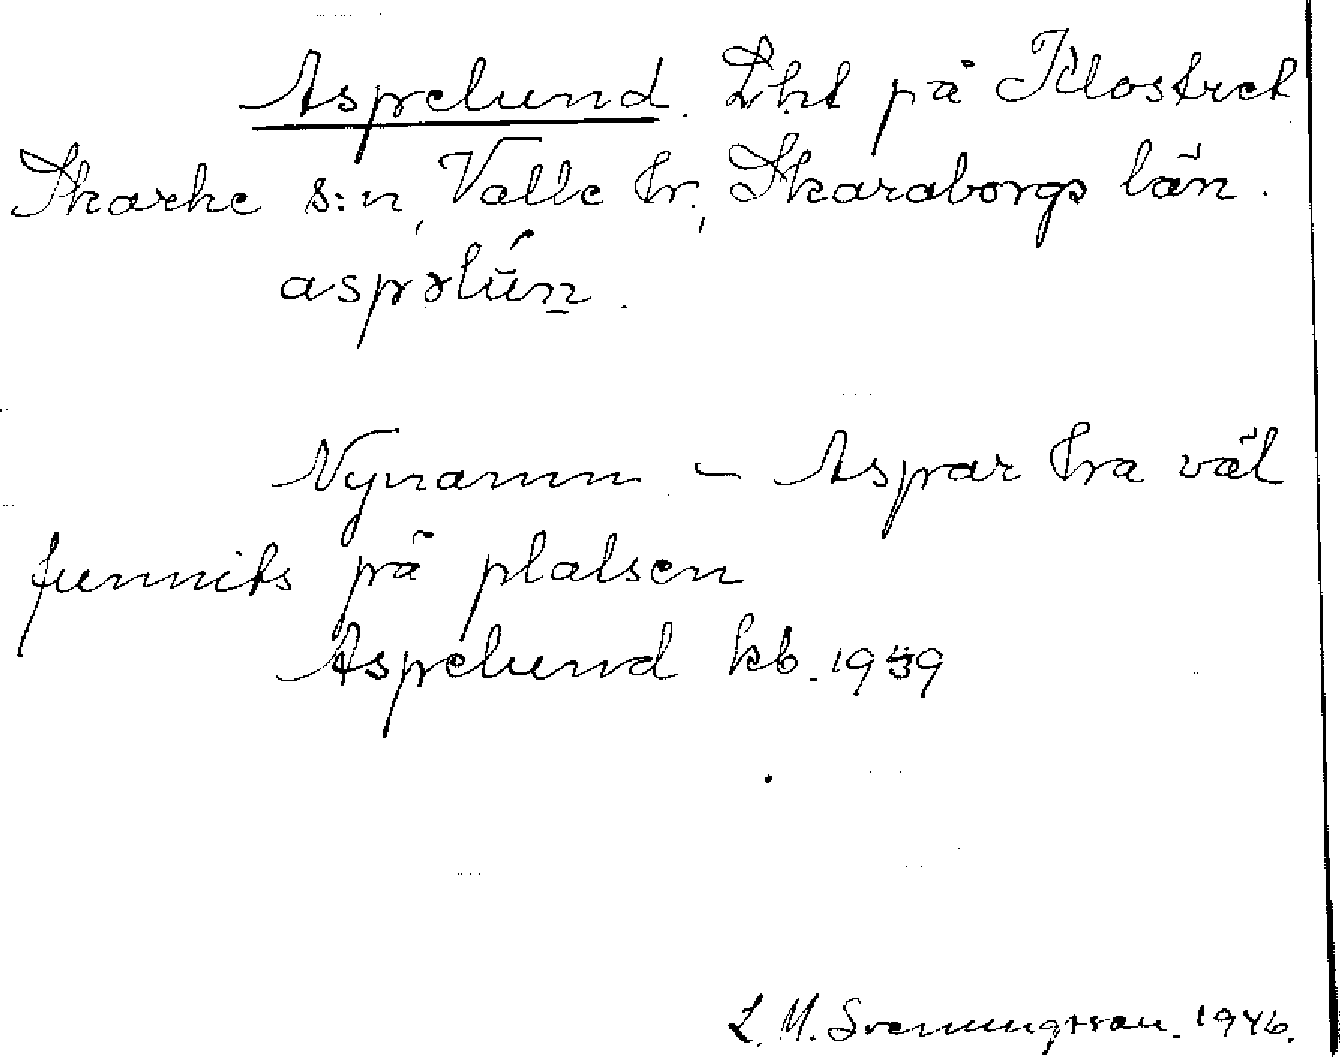 Aspelund. Lht på Klostret
Skarke s:n, Valle hr, Skaraborgs län.
aspəlún̠.
Nynamn – Aspar ha väl
funnits på platsen
Aspelund kb. 1939
L. M. Svenungsson. 1946.